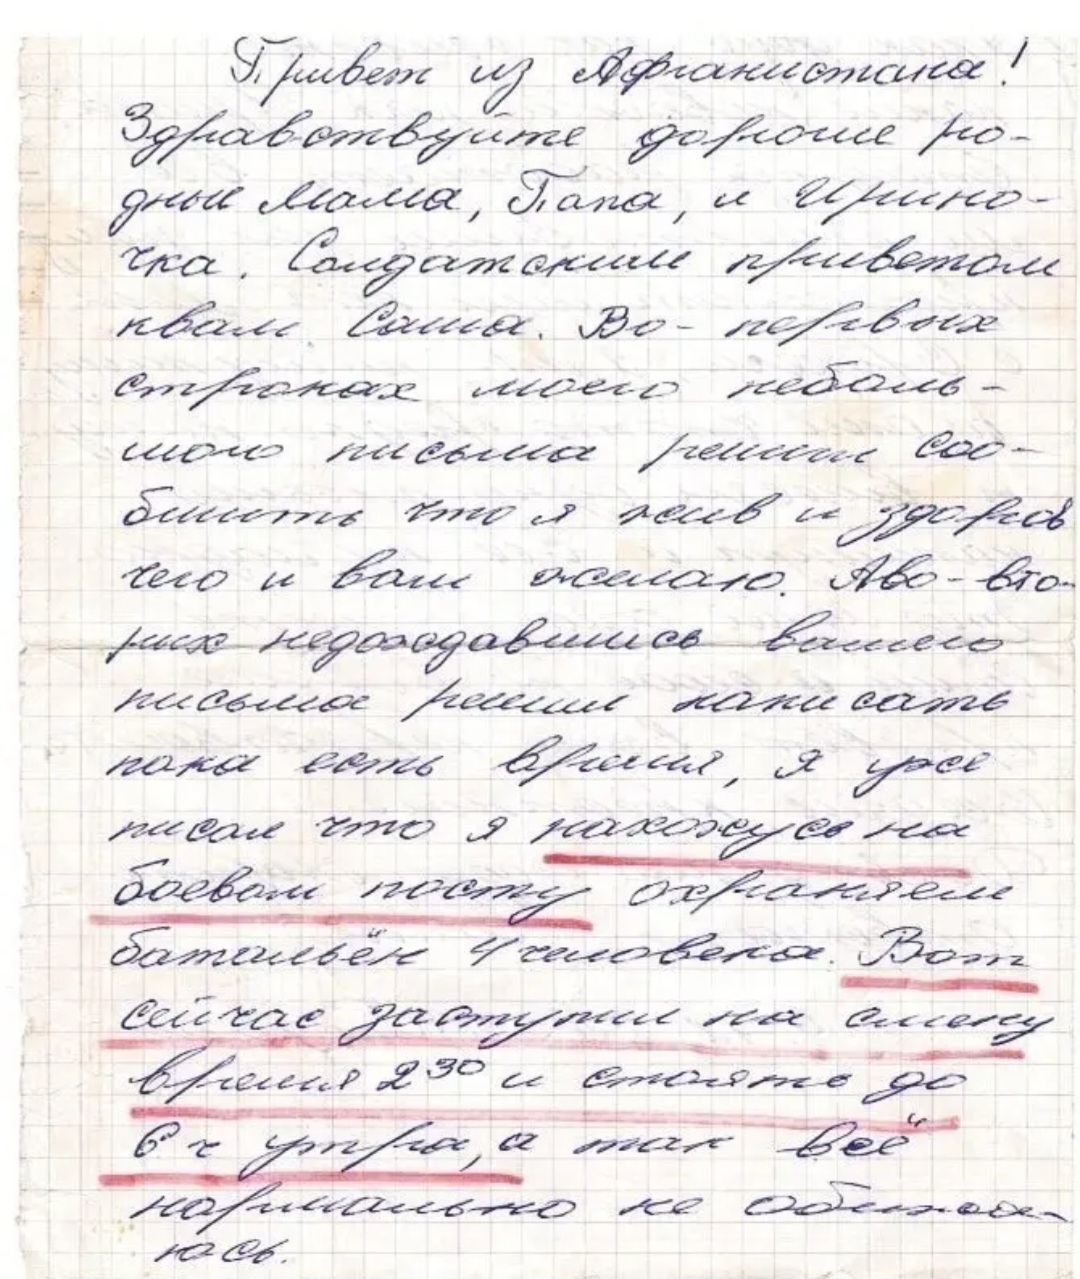 Привет из Афганистана!
Здравствуйте дорогие ро-
дные Мама, Папа, и Ирино-
чка. Солдатским приветом
квам Саша. Во-первых
строках моего неболь-
шого письма решил соо-
бшить что я жив и здоров
чего и вам желаю. Аво-вто-
рых недождавшись вашего
письма решил написать
пока есть время, я уже
писал что я нахожусь на
боевом посту охраняем
батальён 4 человека. Вот
сейчас заступил на смену
время 2 30 и стоять до
6 ч утра, а так всё
нормально не обижа-
юсь.